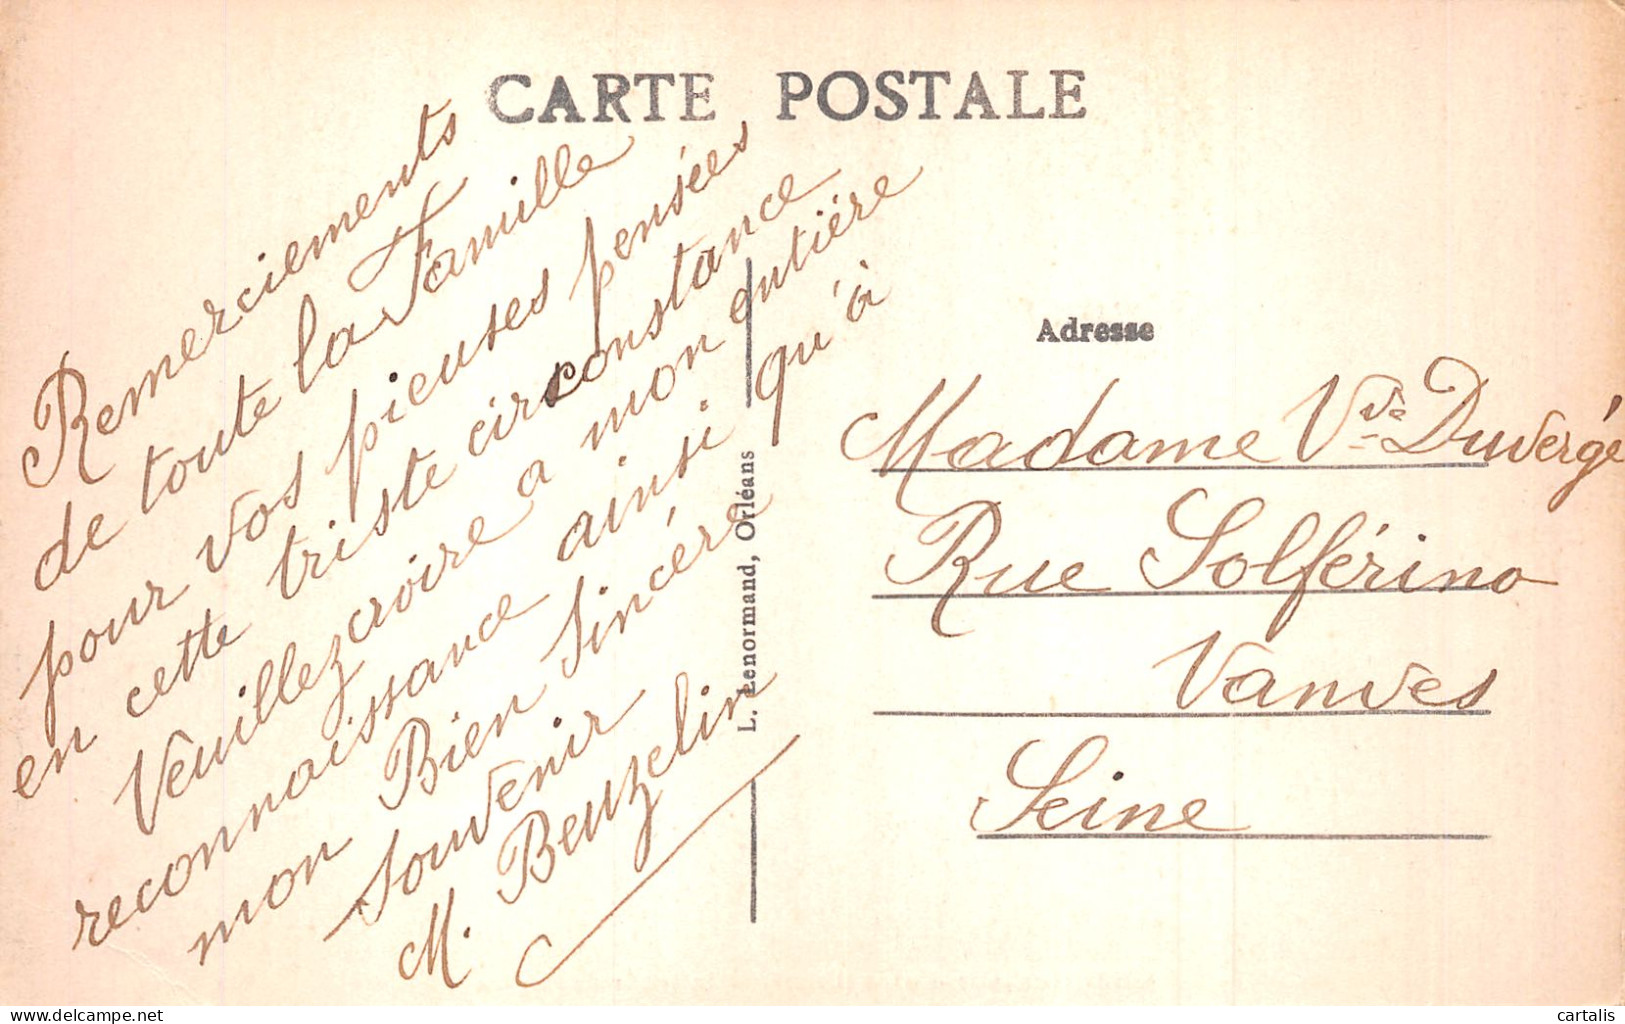 CARTE POSTALE
Remerciements
de toute la Famille
pour vos pieuses pensées
en cette triste circonstance
Veuillez croire a mon entière
reconnaissance ainsi qu'à
mon Bien Sincère
souvenir
M. Beuzelin
L. Lenormand, Orléans
Adresse
Madame Vve Duvergé
Rue Solférino
Vanves
Seine
delcampe.net
cartalis